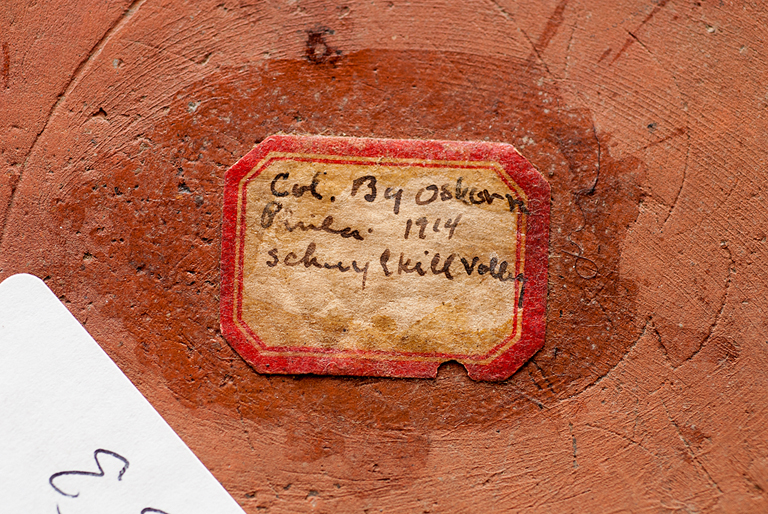 Col. By Osborn
Phila. 1914
Schuylkill Valley